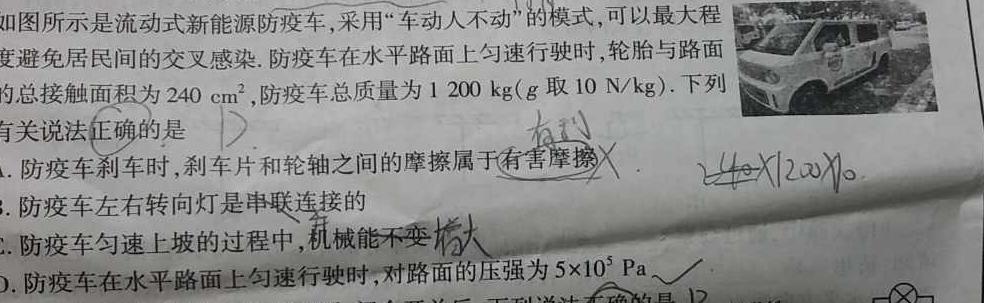 如图所示是流动式新能源防疫车,采用“车动人不动”的模式,可以最大程
度避免居民间的交叉感染.防疫车在水平路面上匀速行驶时,轮胎与路面
的总接触面积为240 cm²,防疫车总质量为1 200 kg(g取10 N/kg).下列
有关说法正确的是 D
有利
A.防疫车刹车时,刹车片和轮轴之间的摩擦属于有害摩擦 X
240X1200X10.
B.防疫车左右转向灯是串联连接的
C.防疫车匀速上坡的过程中,机械能不变 增大
D.防疫车在水平路面上匀速行驶时,对路面的压强为5×10⁵ Pa ✓
下列说法正确的是 D